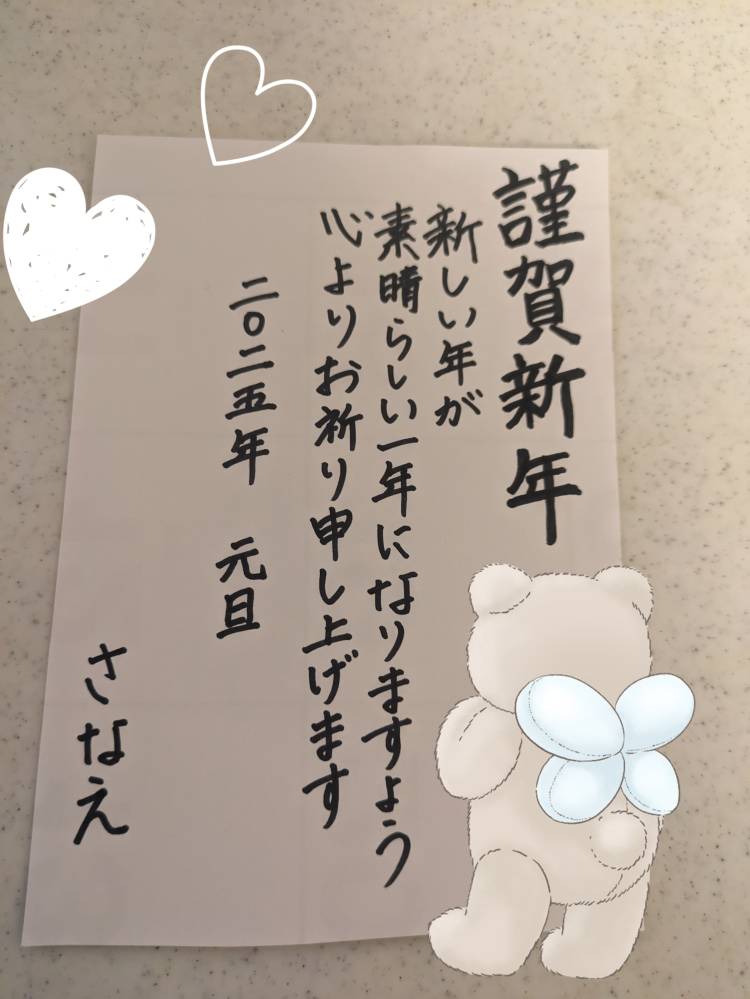 謹賀新年
新しい年が
素晴らしい一年になりますよう
心よりお祈り申し上げます
二〇二五年 元旦
さなえ